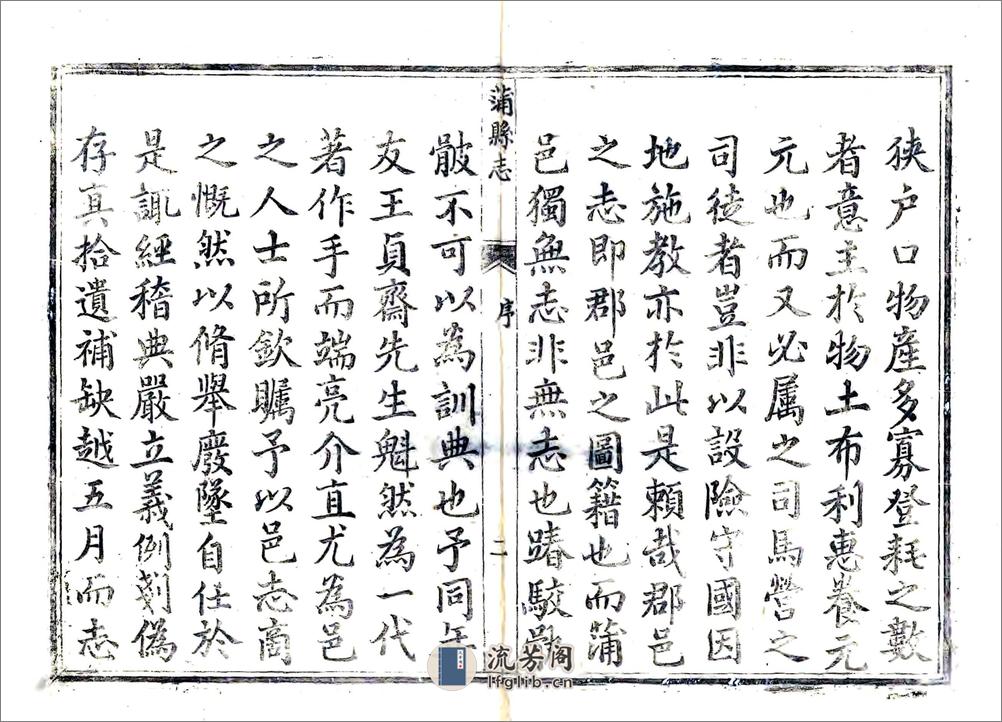 狹户口物產多寡登耗之數
者意主於物土布利惠養元
元也而又必属之司馬營之
司徒者豈非以設險守國因
地施教亦於此是賴哉郡邑
之志即郡邑之圖籍也而蒲
邑獨無志非無志也踳駁
蒲縣志
序
二
骳不可以為訓典也予同年
友王貞齋先生魁然為一代
著作手而端亮介直尤為邑
之人士所欽矚予以邑志商
之慨然以脩舉廢墜自任於
是諏經稽典嚴立義例剗偽
存真拾遺補缺越五月而志
流芳阁
lfglib.cn